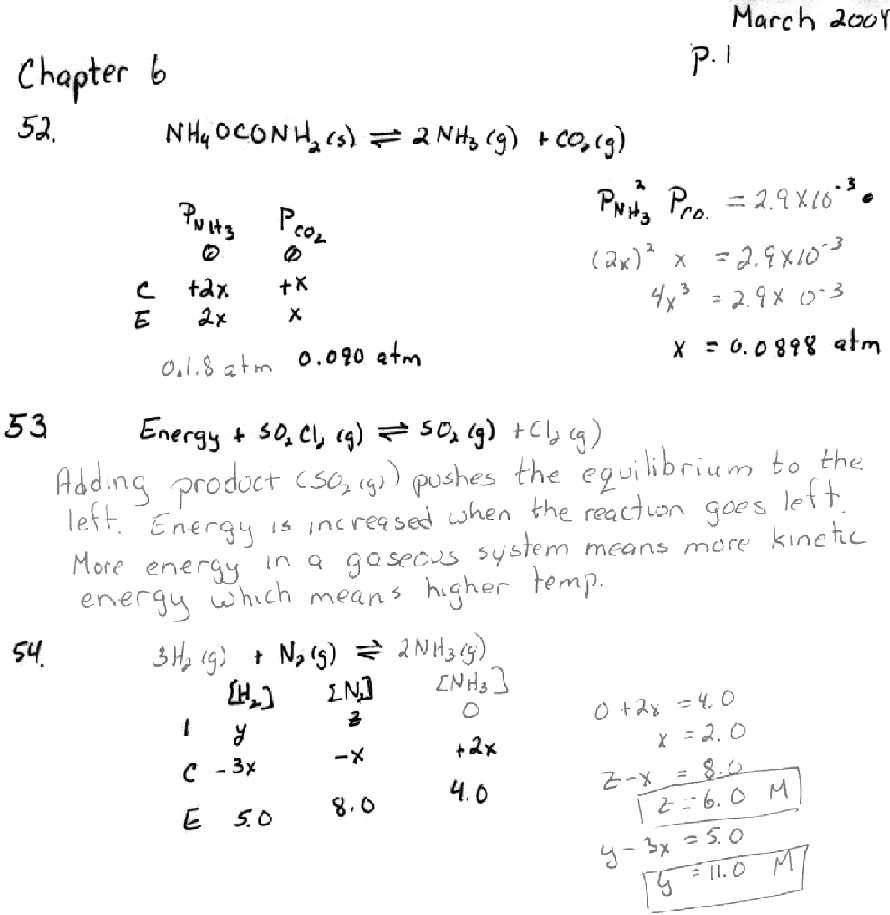 March 2004
P. 1
Chapter 6
52. NH₄OCONH₂(s) ⇌ 2NH₃(g) + CO₂(g)
P_NH₃ P_CO₂
0 0
C +2x +x
E 2x x
0.18 atm 0.090 atm
P_NH₃² P_CO. = 2.9×10⁻³
(2x)² x = 2.9×10⁻³
4x³ = 2.9× 0⁻³
x = 0.0898 atm
53 Energy + SO₂Cl₂(g) ⇌ SO₂(g) + Cl₂(g)
Adding product (SO₂(g)) pushes the equilibrium to the
left. Energy is increased when the reaction goes left.
More energy in a gaseous system means more kinetic
energy which means higher temp.
54. 3H₂(g) + N₂(g) ⇌ 2NH₃(g)
[H₂] [N₂] [NH₃]
I y z 0
C -3x -x +2x
E 5.0 8.0 4.0
0 + 2x = 4.0
x = 2.0
z-x = 8.0
z = 6.0 M
y - 3x = 5.0
y = 11.0 M